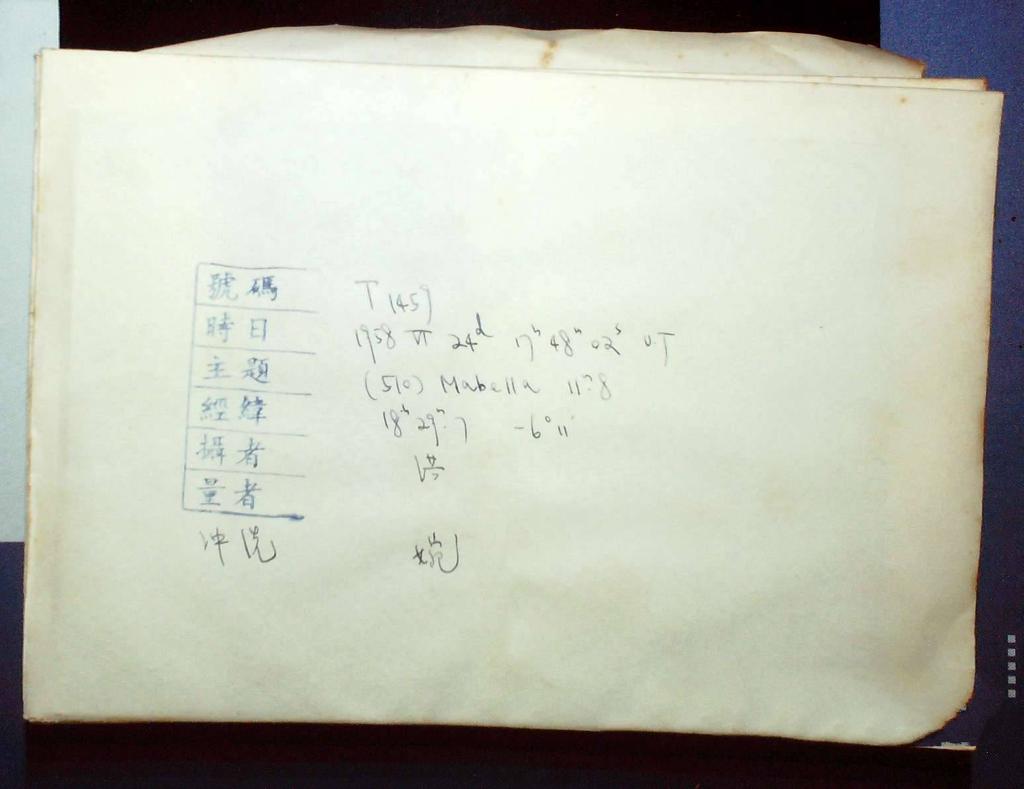 號碼 T 1459
時日 1958 VI 24ᵈ 17ʰ 48ᵐ 02ˢ UT
主題 (510) Mabella 11ᵐ.8
經緯 18ʰ 29ᵐ.7 -6° 11'
攝者 洪
量者
冲洗 婉